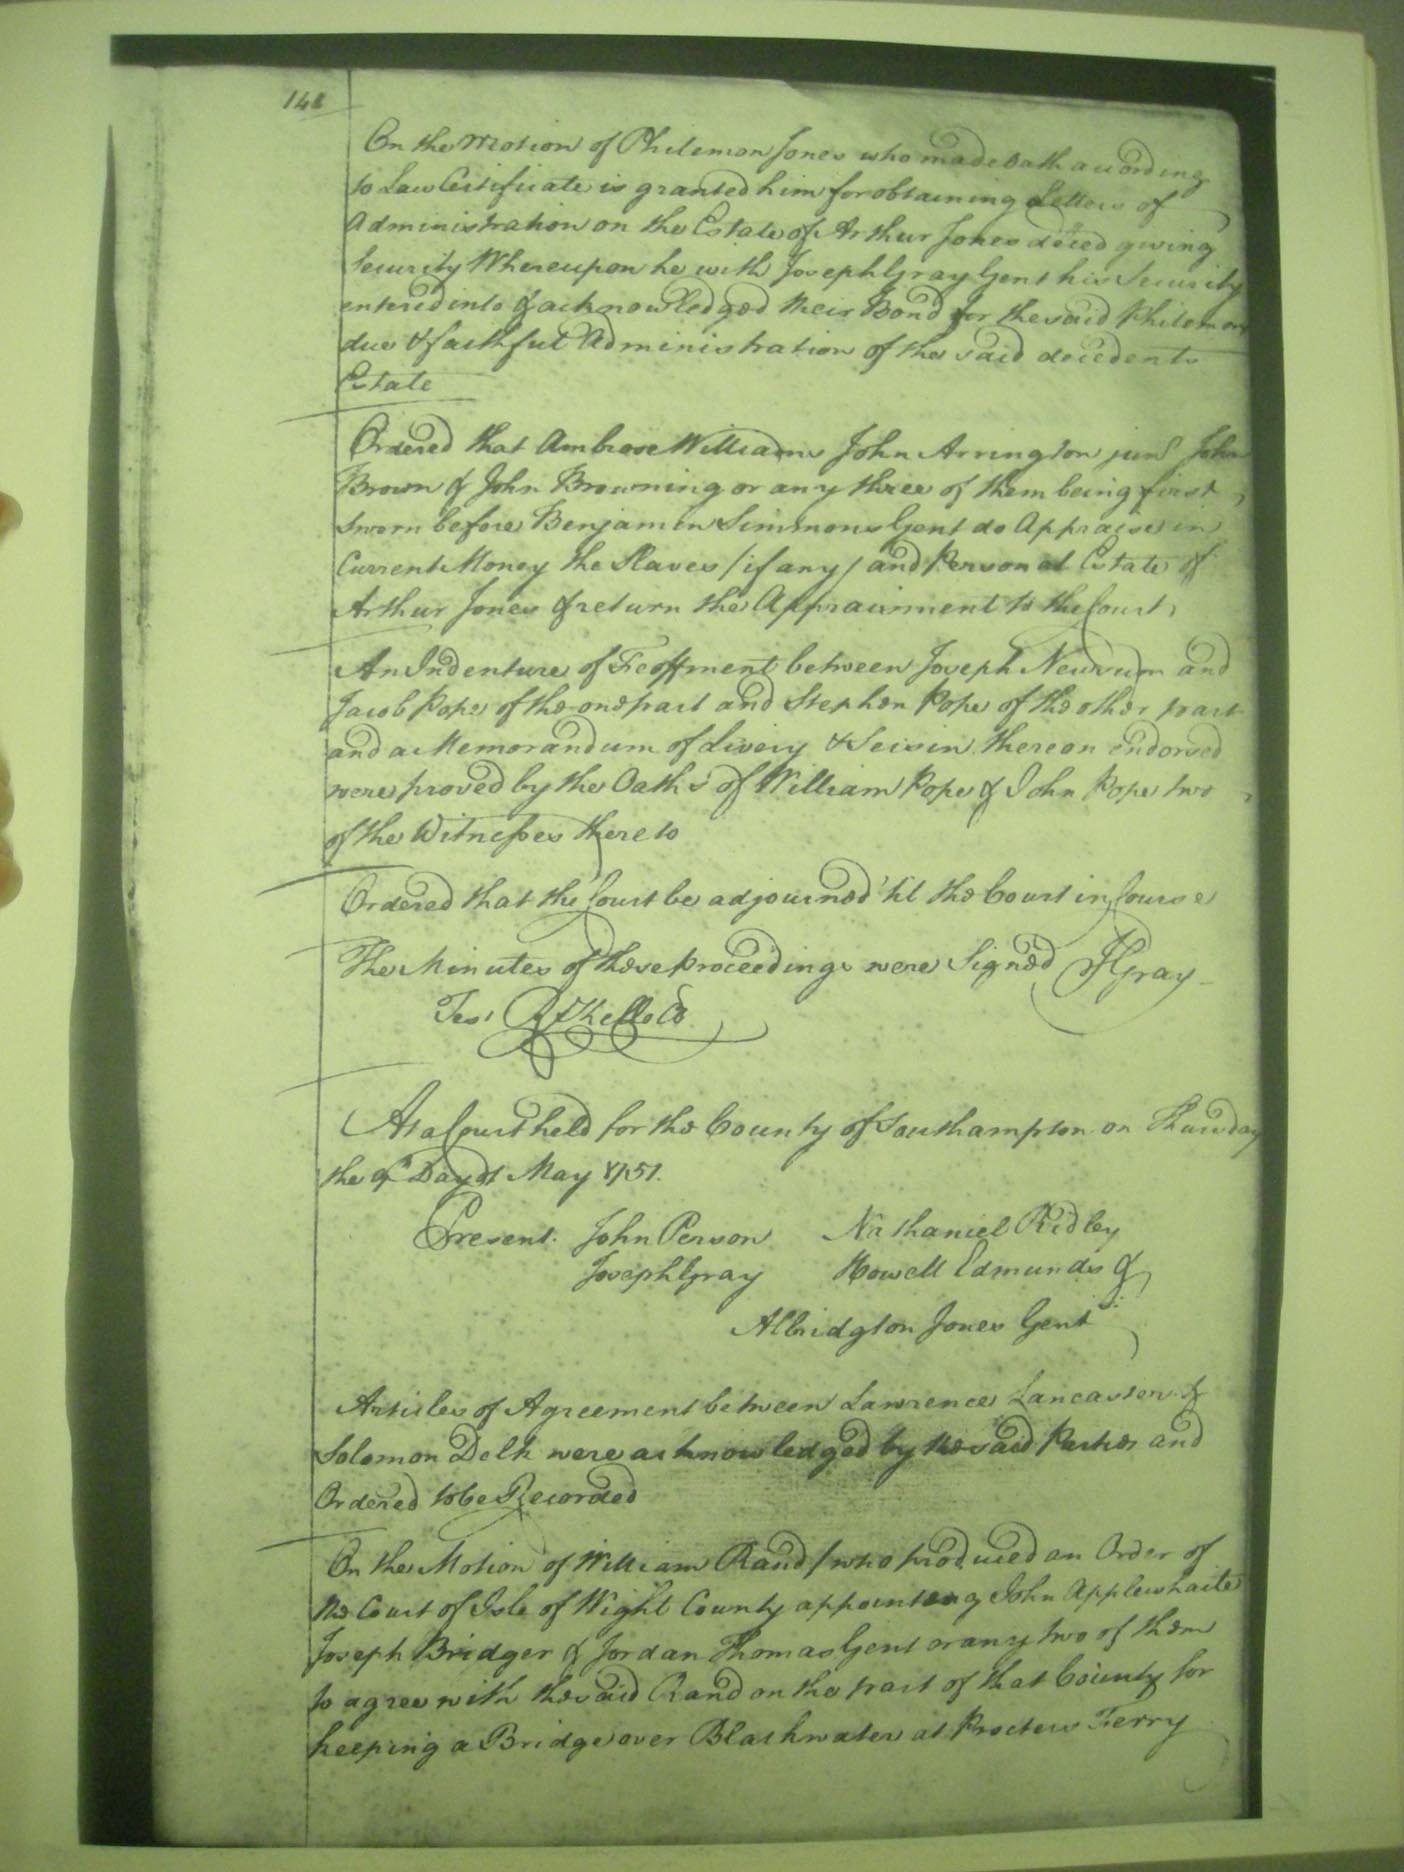 148
On the Motion of Philemon Jones who made Oath according
to Law Certificate is granted him for obtaining Letters of
Administration on the Estate of Arthur Jones deced giving
Security Whereupon he with Joseph Gray Gent his Security
entered into & acknowledged their Bond for the said Philemons
due & faithful Administration of the said decedents
Estate
Ordered that Ambrose Williams John Arrington junr John
Brown & John Browning or any three of them being first
Sworn before Benjamin Simmons Gent do Appraise in
Current Money the Slaves /if any/ and Personal Estate of
Arthur Jones & return the Appraisment to the Court
An Indenture of Feoffment between Joseph Newsum and
Jacob Pope of the one part and Stephen Pope of the other part
and a Memorandum of Livery & Seisin thereon endorsed
were proved by the Oaths of William Pope & John Pope two
of the Witnesses thereto
Ordered that the Court be adjourned 'til the Court in Course
The Minutes of these proceedings were Signed J Gray
Test
At a Court held for the County of Southampton on Thursday
the 9th Day of May 1751.
Present. John Person Nathaniel Ridley
Joseph Gray Howell Edmunds &
Albridgton Jones Gent
Articles of Agreement between Lawrence Lancaster &
Solomon Delk were acknowledged by the said Parties and
Ordered to be Recorded
On the Motion of William Rand /who produced an Order of
the Court of Isle of Wight County appointing John Applewhaite
Joseph Bridger & Jordan Thomas Gent or any two of them
to agree with the said Rand on the part of that County for
keeping a Bridge over Blackwater at Procters Ferry